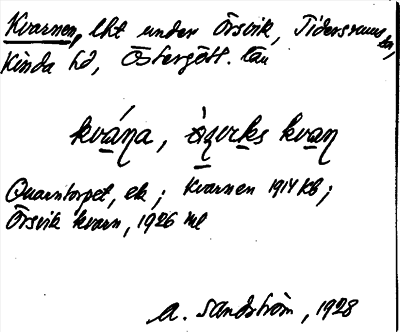 Kvarnen, lht under Örsvik, Tidersrums sn,
Kinda hd, Östergötl. län
kvána, ò̱ṣvɩks kvan
Quarntorpet, ek; Kvarnen 1914 kb;
Örsvik kvarn, 1926 ml
A. Sandström, 1928